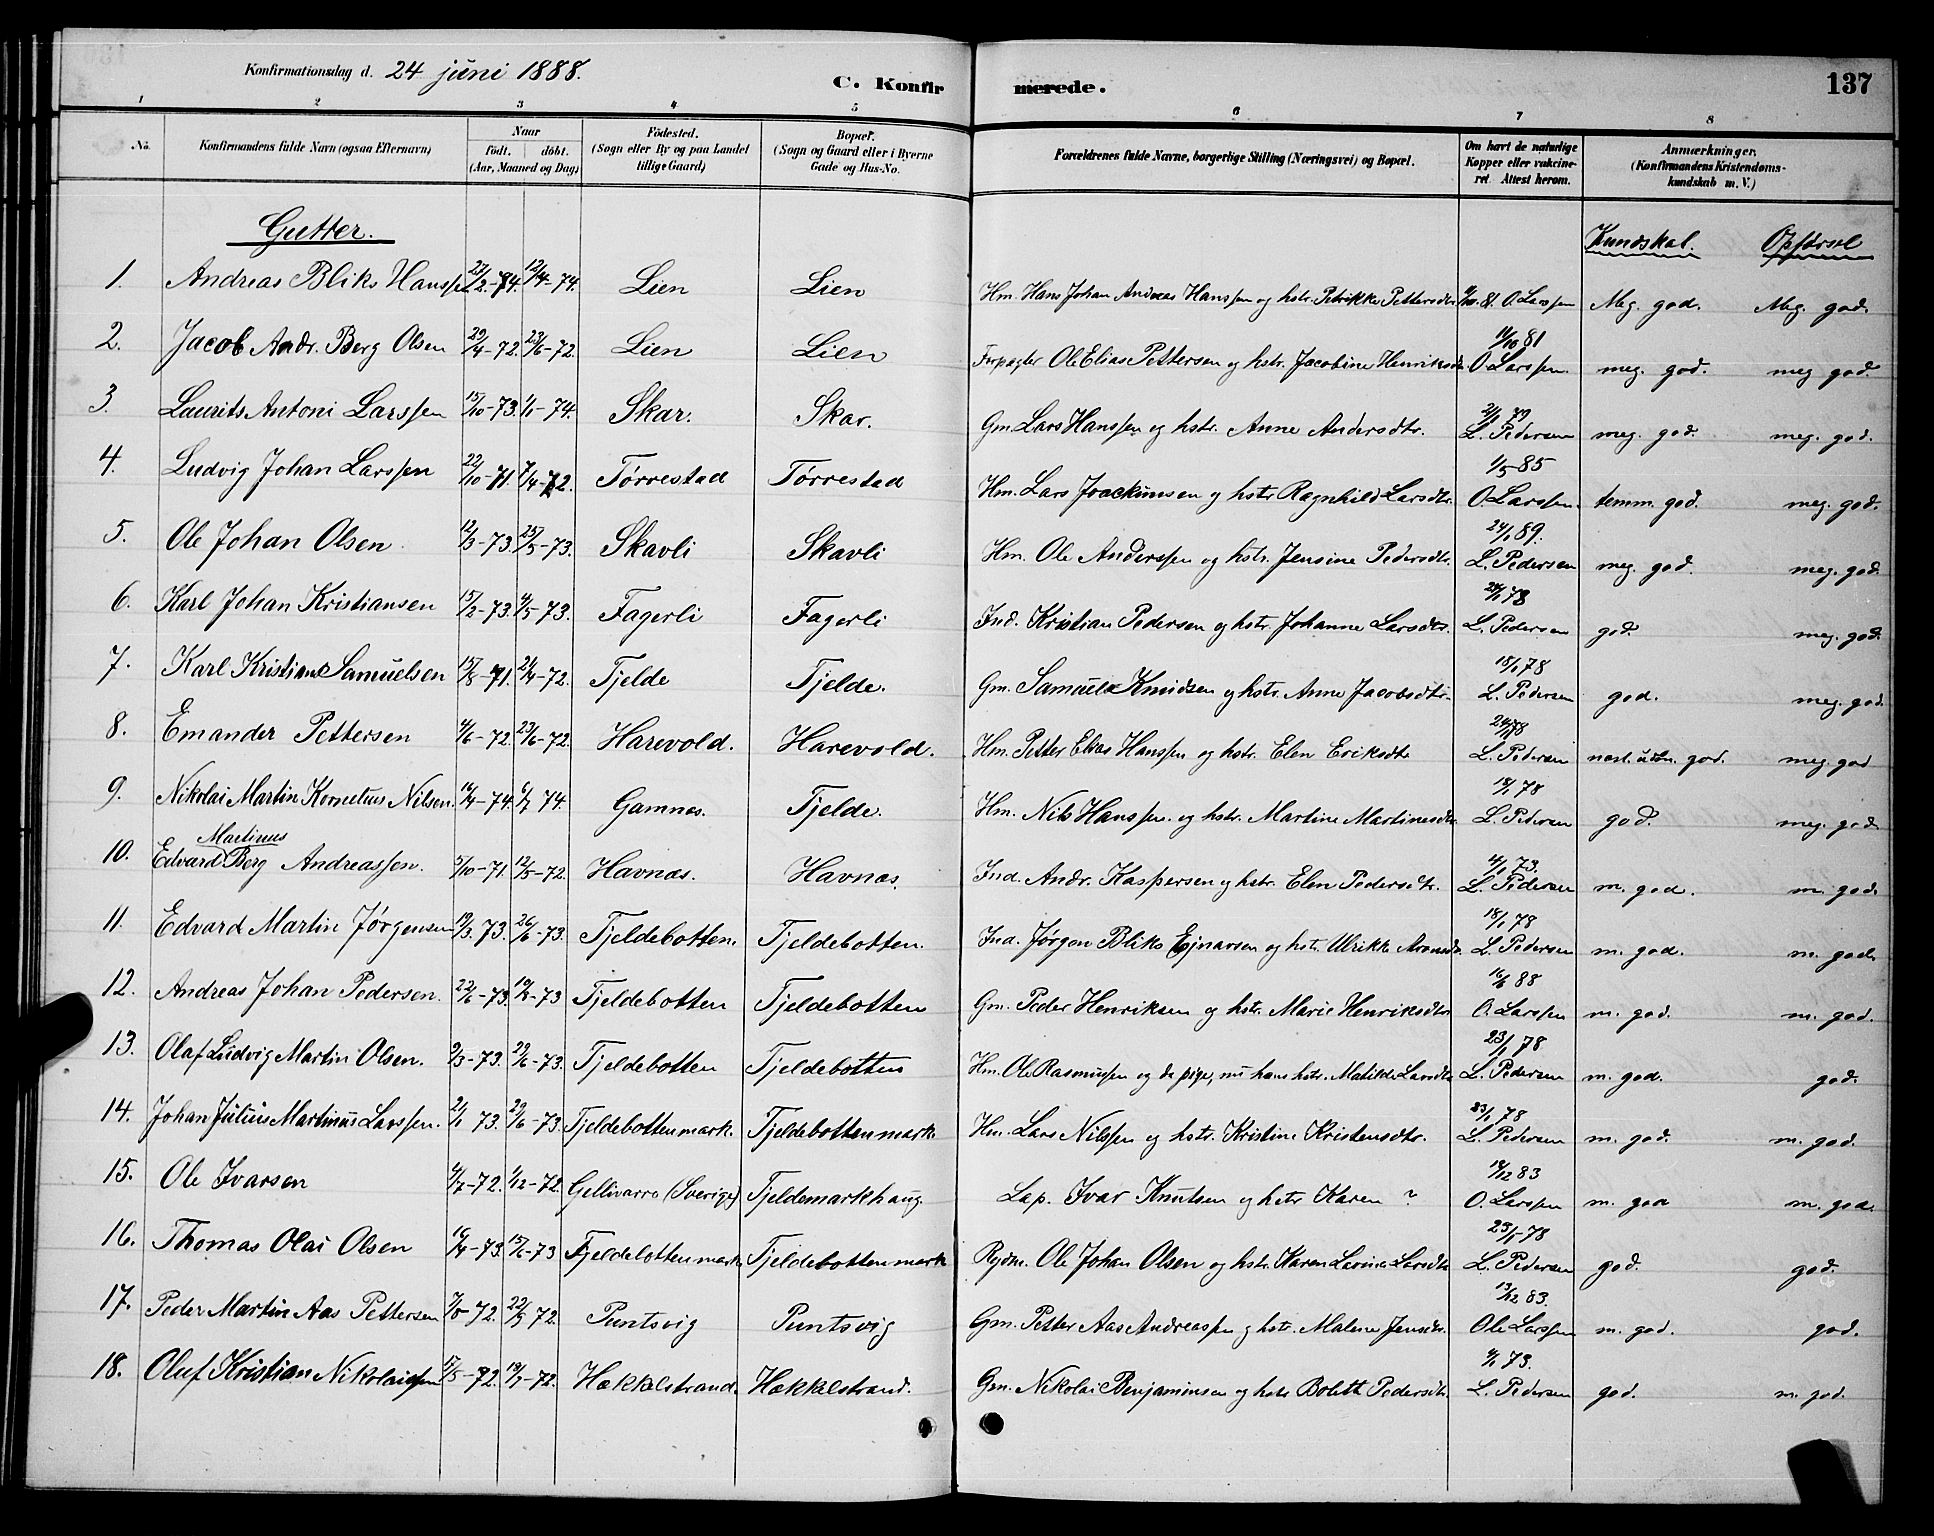 Konfirmationsdag d. 24 juni 1888. C. Konfirmerede. 137
1 2 3 4 5 6 7 8
No. Konfirmandens fulde Navn (ogsaa Efternavn) Naar födt. döbt. (Aar, Maaned og Dag) Födested. (Sogn eller By og paa Landet tillige Gaard) Bopæl. (Sogn og Gaard eller i Byerne Gade og Hus-No. Forældrenes fulde Navne, borgerlige Stilling (Næringsvei) og Bopæl. Om havt de naturlige Kopper eller vakcineret Attest herom. Anmærkninger. (Konfirmandens Kristendomskundskab m. V.)
Gutter. Kundskab. Opførsel
1. Andreas Bliks Hanssen 12/4-74. Lien Lien Hm. Hans Johan Andreas Hanssen og hstr. Petrikke Pettersdtr. O. Larssen Meg. god. Meg. god.
2. Jacob Andr. Berg Olsen 29/4-72. 23/6-72. Lien Lien Forpagter Ole Elias Pettersen og hstr. Jacobine Henriksdtr. 11/10 81 O. Larssen. meg. god. meg god.
3. Laurits Antoni Larssen 15/10-73. 1/1-74. Skar. Skar. Gm. Lars Hanssen og hstr. Anne Andersdtr. L. Pedersen meg. god. meg. god.
4. Ludvig Johan Larssen 22/10-71. 7/4-72. Tørrestad Tørrestad Hm. Lars Joackimsen og hstr Ragnhild Larsdtr. 1/5-85 O. Larssen. temm. god. meg. god.
5. Ole Johan Olsen 12/3-73. 25/5-73. Skavli Skavli Hm. Ole Anderssen og hstr. Jensine Pedersdtr. 24/1 89. L. Pedersen meg. god. meg. god.
6. Karl Johan Kristiansen 15/2-73. 4/5-73. Fagerli Fagerli Ind. Kristian Pedersen og hstr. Johanne Larsdtr. L. Pedersen god. meg. god.
7. Karl Kristian Samuelsen 15/8-71. 21/4-72. Tjelde Tjelde. Gm. Samuel Knudsen og hstr. Anne Jacobsdtr. 18/1 78 L. Pedersen god. meg. god.
8. Emander Pettersen 4/6-72. 23/6-72. Harevold. Harevold. Hm. Petter Elias Hanssen og hstr. Elen Eriksdtr. L. Pedersen god. meg. god
9. Nikolai Martin Kornelius Nilsen. 16/4-74. 74. Gamnes. Tjelde. Hm. Nils Hanssen. og hstr. Martine Martinesdtr. 18/1 78 L. Pedersen god. meg. god.
10. Edvard Martinus Berg Andreassen. 5/10-71. 12/5-72. Havnæs. Havnæs. Ind. Andr. Kaspersen og hstr. Elen Pedersdtr. L. Pedersen m. god. m. god.
11. Edvard Martin Jørgensen 19/3. 73. 26/6-73. Tjeldebotten. Tjeldebotten. Ind. Jørgen Bliks Ejnarsen og hstr. Ulrikke 18/1 78 L. Pedersen m. god. m. god.
12. Andreas Johan Pedersen. 22/6-73. 10/8-73 Tjeldebotten Tjeldebotten Gm. Peder Henriksen og hstr. Marie Henriksdtr. 16/6 88 O. Larssen m. god. m. god.
13. Olaf Ludvig Martin Olsen. 9/3-73. 29/6-73. Tjeldebotten Tjeldebotten Hm. Ole Rasmussen og da pige, nu hans hstr. Matilde Larsdtr. 23/1 78 L. Pedersen m. god. god.
14. Johan Julius Martinus Larssen. 21/1 73. 29/6-73. Tjeldebottenmark. Tjeldebottenmark Hm. Lars Nilssen og hstr. Kristine Kristensdtr. 23/1 78 L. Pedersen m. god. m. god.
15. Ole Ivarsen 4/7-72. 1/12-72. Gellivarre (Sverige) Tjeldemarkhaug. Lap. Ivar Knutsen og hstr Karen ? 12 83 O. Larssen m. god m. god.
16. Thomas Olai Olsen 73. 15/6-73 Tjeldebottenmark Tjeldebottenmark Rydm. Ole Johan Olsen og hstr. Karen Lavina Larsdtr. 23/1-78 L. Pedersen god. god.
17. Peder Martin Aas Pettersen 7/8-72. 22/9 72. Puntsvig Puntsvig Gm. Petter Aas Andreassen og hstr. Malene Jensdtr. 13/12 83. Ole Larssen m. god. god.
18. Oluf Kristian Nikolaisen 17/5-72. 72. Hækkelstrand. Hækkelstrand. Gm. Nikolai Benjaminsen og hstr Bolett Pedersdtr. 73. L. Pedersen god. m. god.